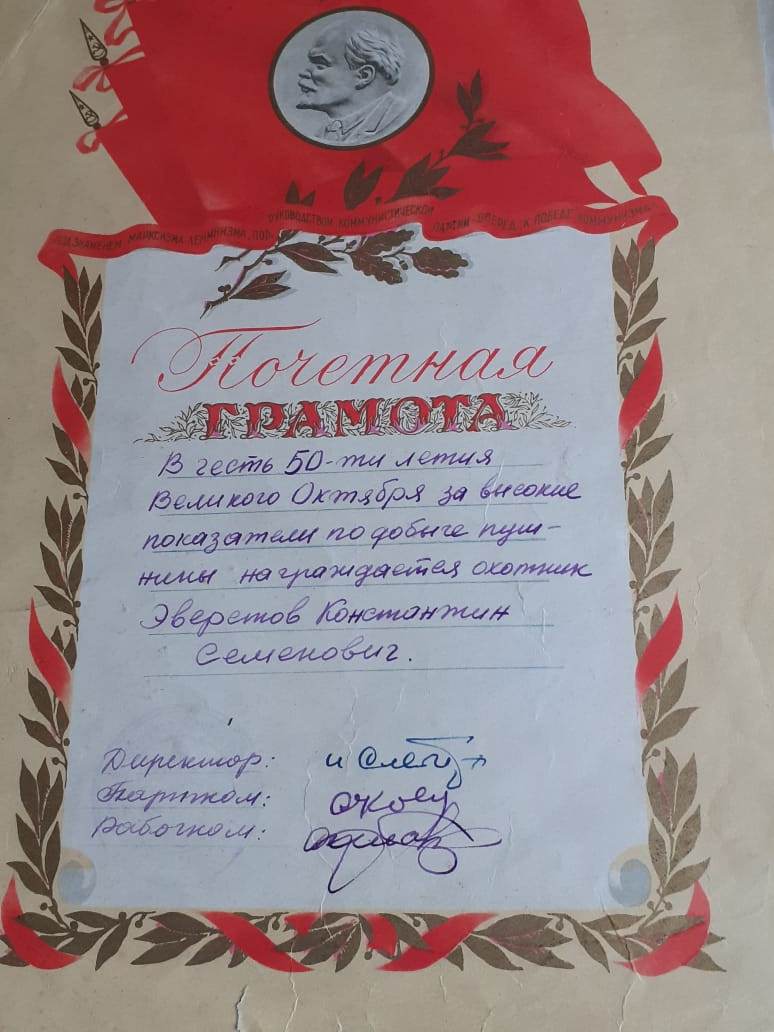 ПОД ЗНАМЕНЕМ МАРКСИЗМА-ЛЕНИНИЗМА, ПОД РУКОВОДСТВОМ КОММУНИСТИЧЕСКОЙ ПАРТИИ - ВПЕРЕД, К ПОБЕДЕ КОММУНИЗМА
Почетная
ГРАМОТА
В честь 50-ти летия
Великого Октября за высокие
показатели по добыче пуш-
нины награждается охотник
Эверстов Константин
Семенович.
Директор:
Партком:
Рабочком: